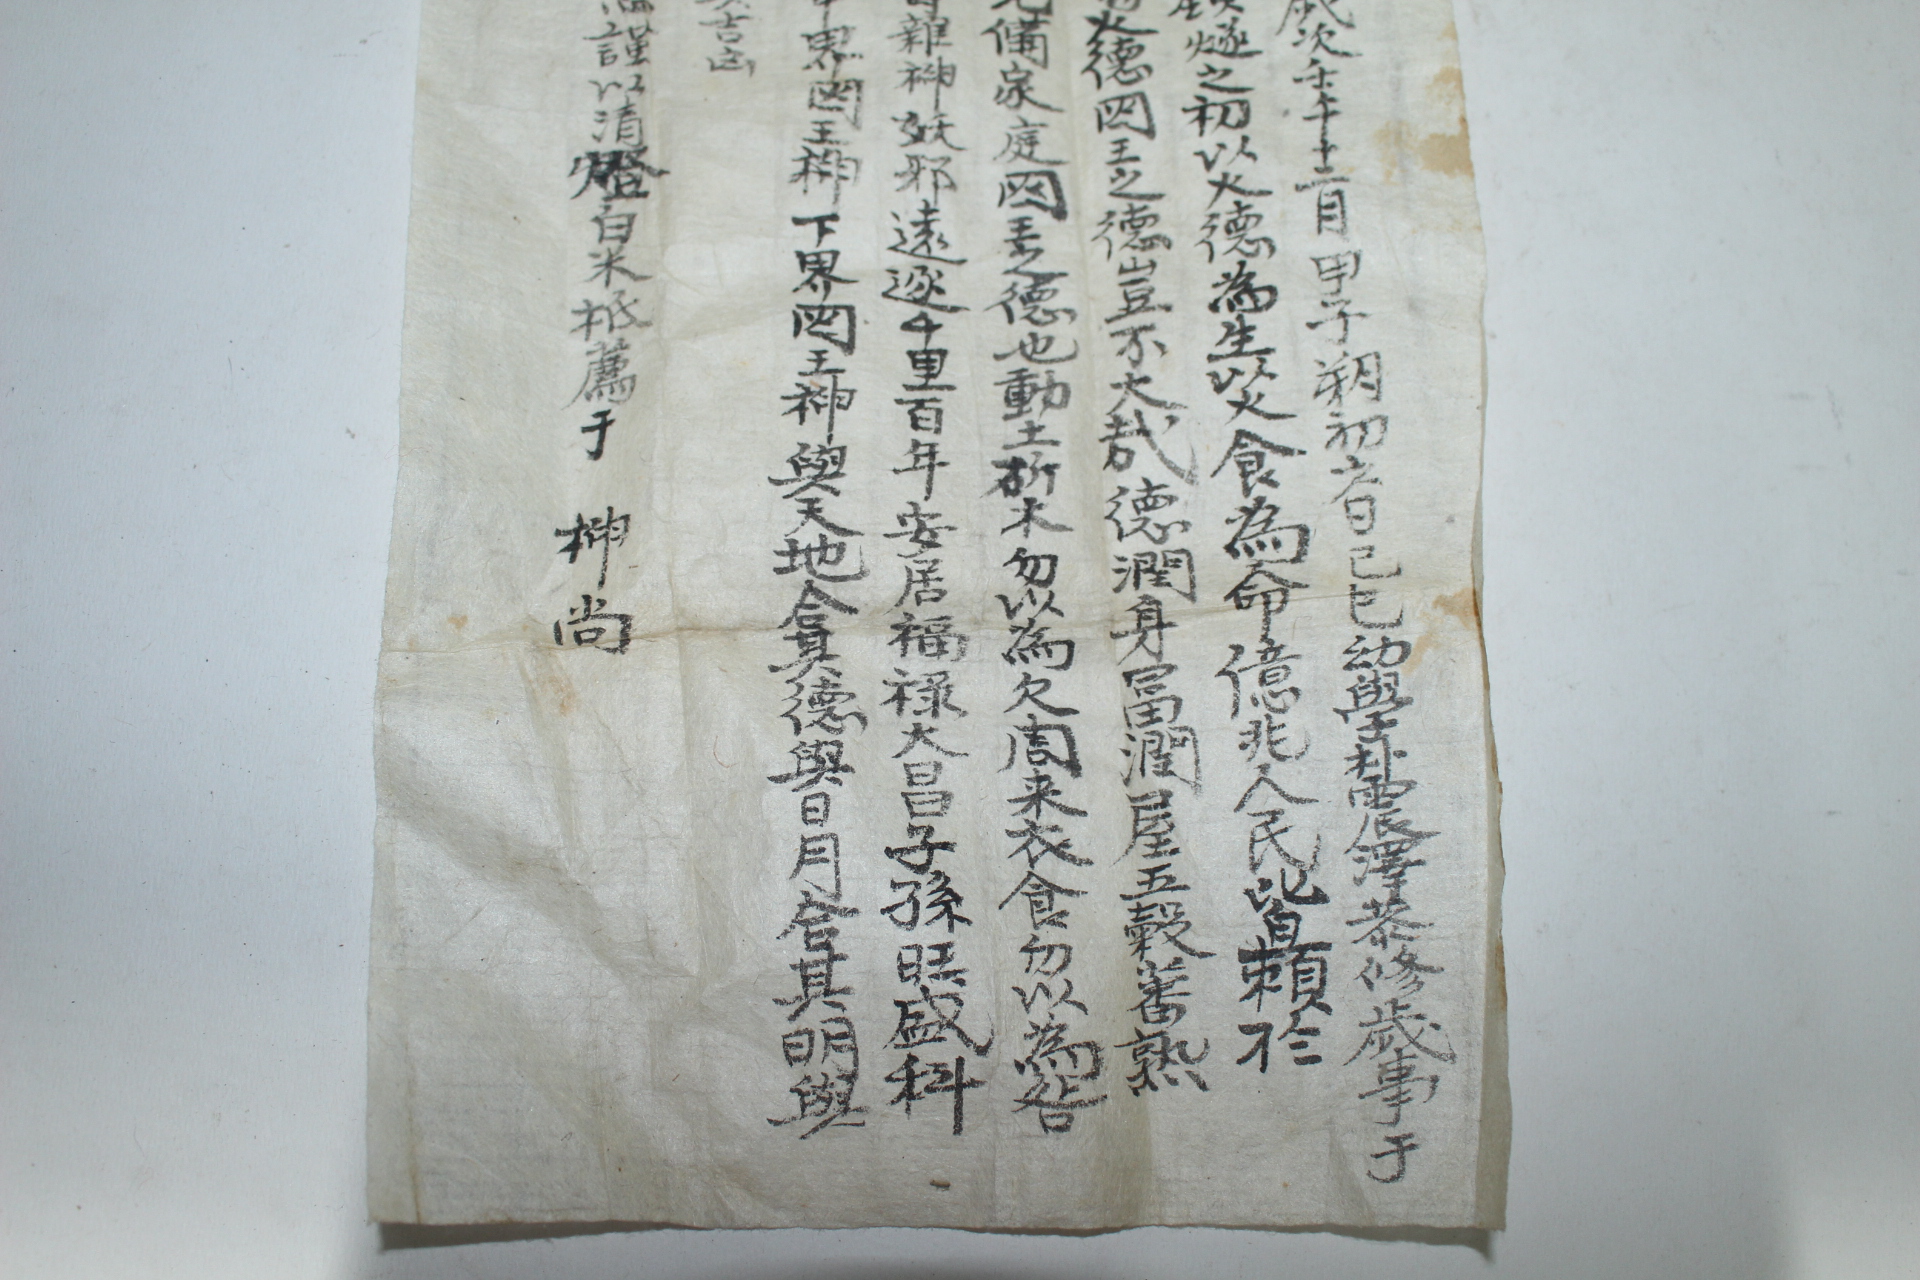 歲次壬午十二月甲子朔初六日己巳幼學朴震澤恭修歲事于
燧之初以火德為生以火食為命億兆人民皆賴於
火德罔王之德豈不大哉德潤身富潤屋五穀蕃熟
備家庭罔王之德也動土斫木勿以為欠周来衣食勿以為咎
雜神妖邪遠逐千里百年安居福祿大昌子孫旺盛科
界罔王神下界罔王神與天地合其德與日月合其明與
吉凶
謹以清燈白米秪薦于 神 尚